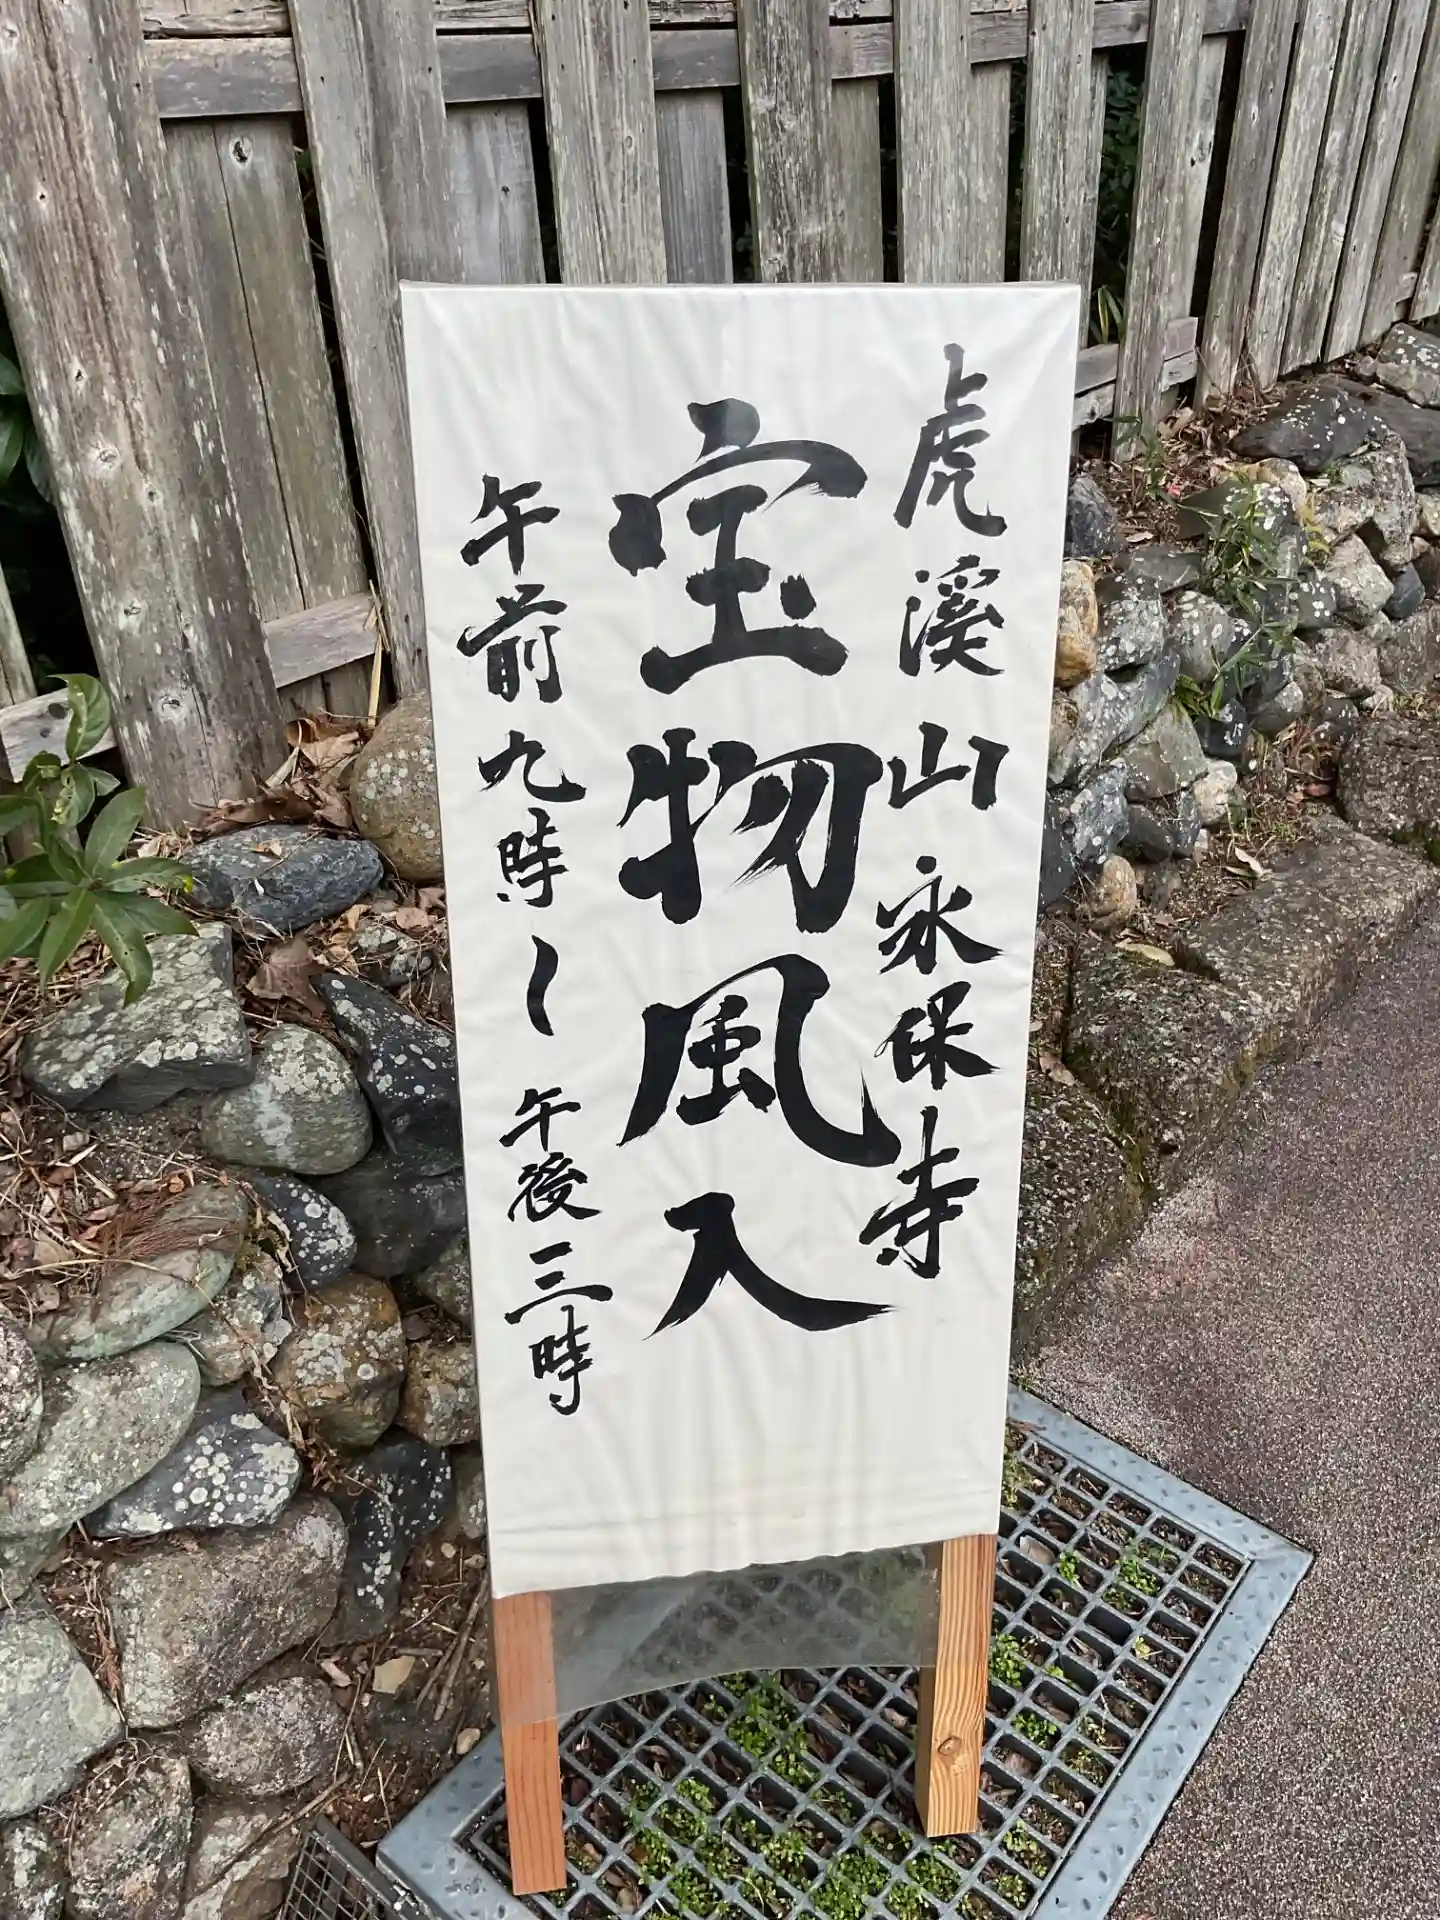 虎溪山 永保寺
宝物風入
午前九時〜午後三時